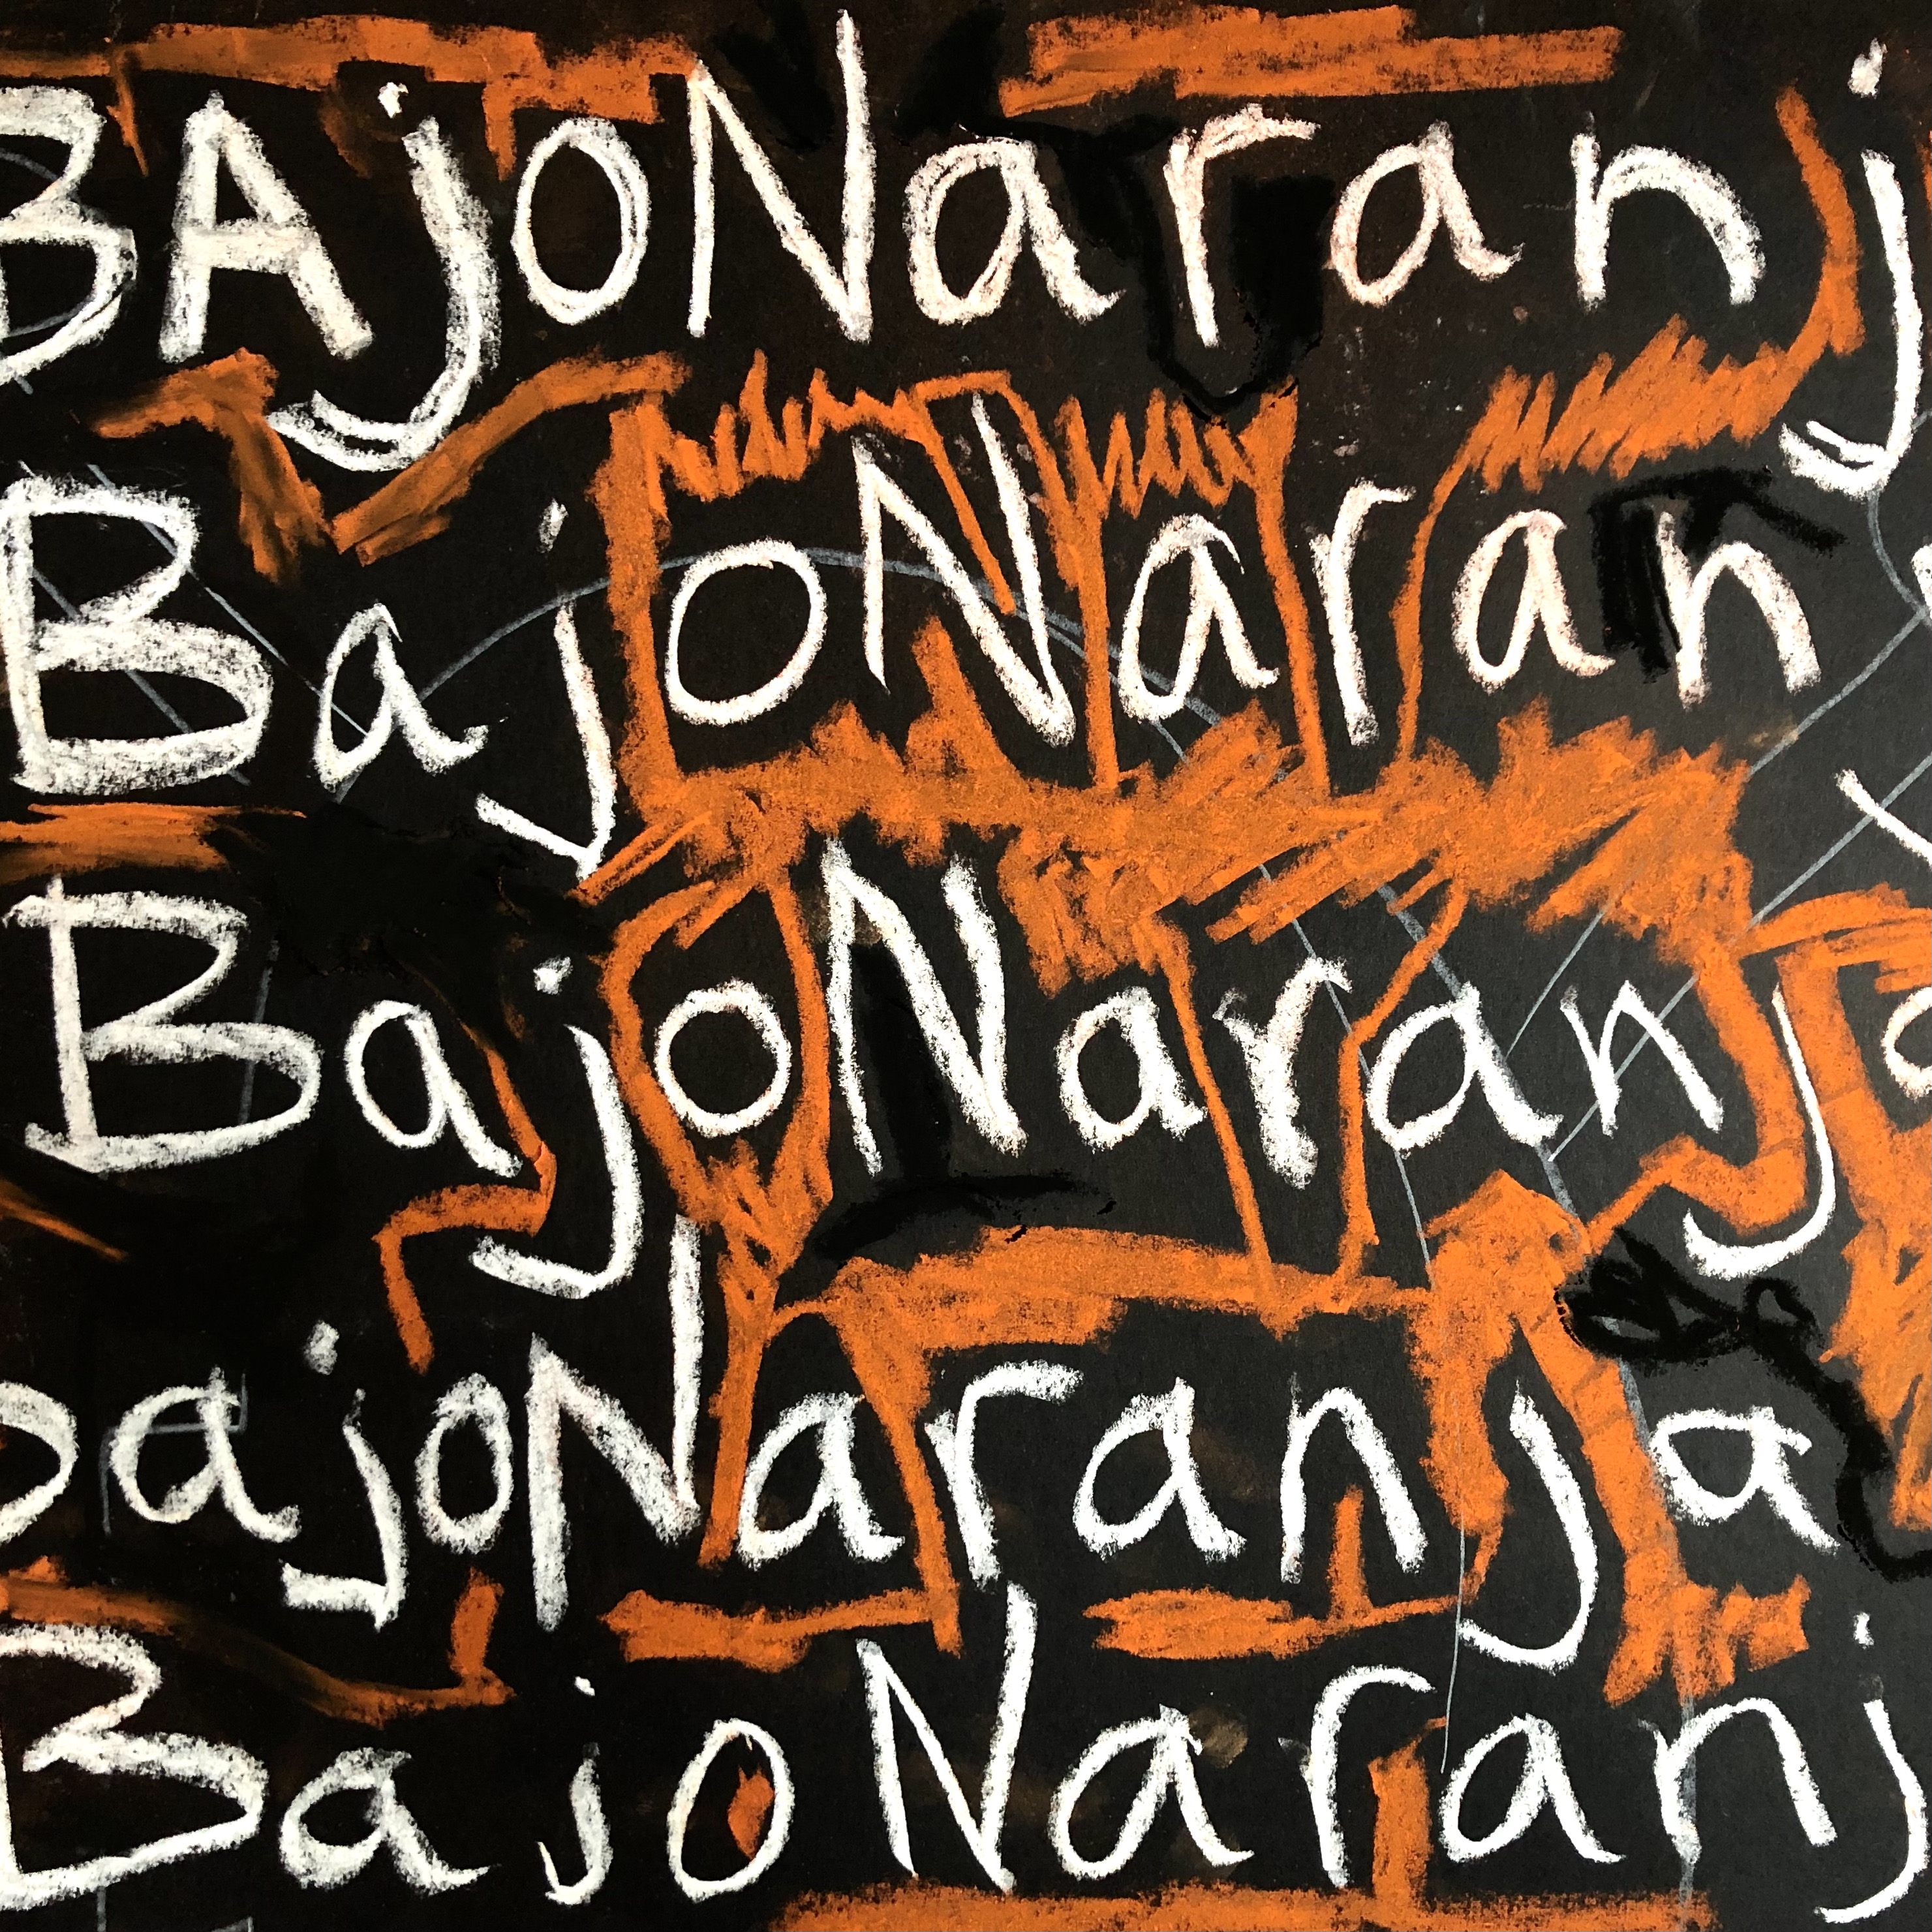 BAjoNaranj
BajoNaran
BajoNaranja
bajoNaranja
BajoNaranj